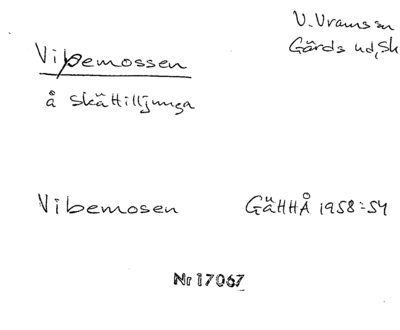 V. Vramsn
Gärds hd, Sk
Vipemossen
å Skättilljunga
Vibemosen GäHHÅ 1958:54
Nr 17067